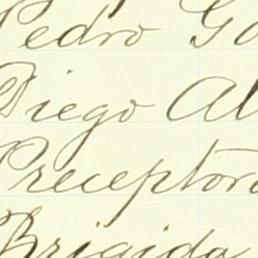 Pedro Go
Diego Al
Preceptor
Brigida